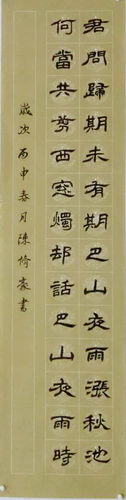 君問歸期未有期巴山夜雨漲秋池
何當共剪西窓燭却話巴山夜雨時
歲次丙申春月陳脩豪書